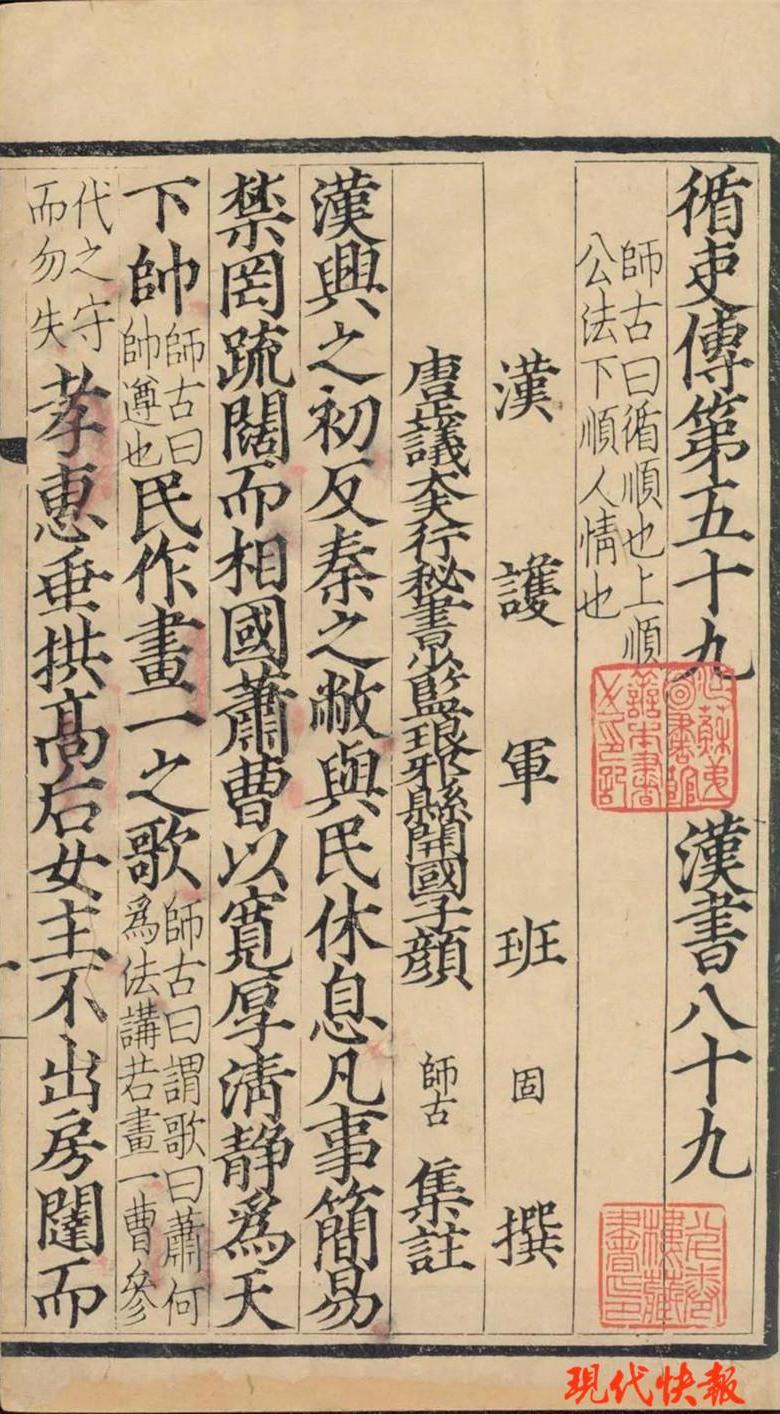 循吏傳第五十九 漢書八十九
師古曰循順也上順
公法下順人情也
漢護軍班固撰
唐正議大夫行秘書少監琅邪縣開國子顏師古集註
漢興之初反秦之敝與民休息凡事簡易
禁罔疏闊而相國蕭曹以寬厚清静爲天
下帥師古曰帥遵也民作畫一之歌師古曰謂歌曰蕭何爲法講若畫一曹參
代之守而勿失孝惠垂拱高后女主不出房闥而
江蘇省
圖書館
善本書
之印記
書印
現代快報